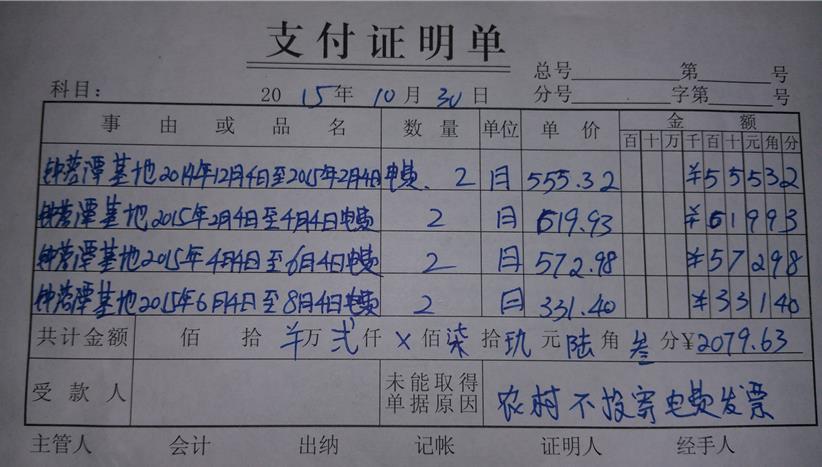 支付证明单
总号 第 号
科目: 2015年10月30日 分号 字第 号
事由或品名 数量 单位 单价 金额
百 十 万 千 百 十 元 角 分
钟落潭基地2014年12月4日至2015年2月4日电费. 2 月 555.32 ¥55532
钟落潭基地2015年2月4日至4月4日电费 2 月 619.93 ¥61993
钟落潭基地2015年4月4日至6月4日电费 2 月 572.98 ¥57298
钟落潭基地2015年6月4日至8月4日电费 2 月 331.40 ¥33140
共计金额 佰 拾 ¥万 弍仟 × 佰 柒拾 玖元 陆角 叁分 ¥2079.63
受款人 未能取得单据原因 农村不投寄电费发票
主管人 会计 出纳 记帐 证明人 经手人